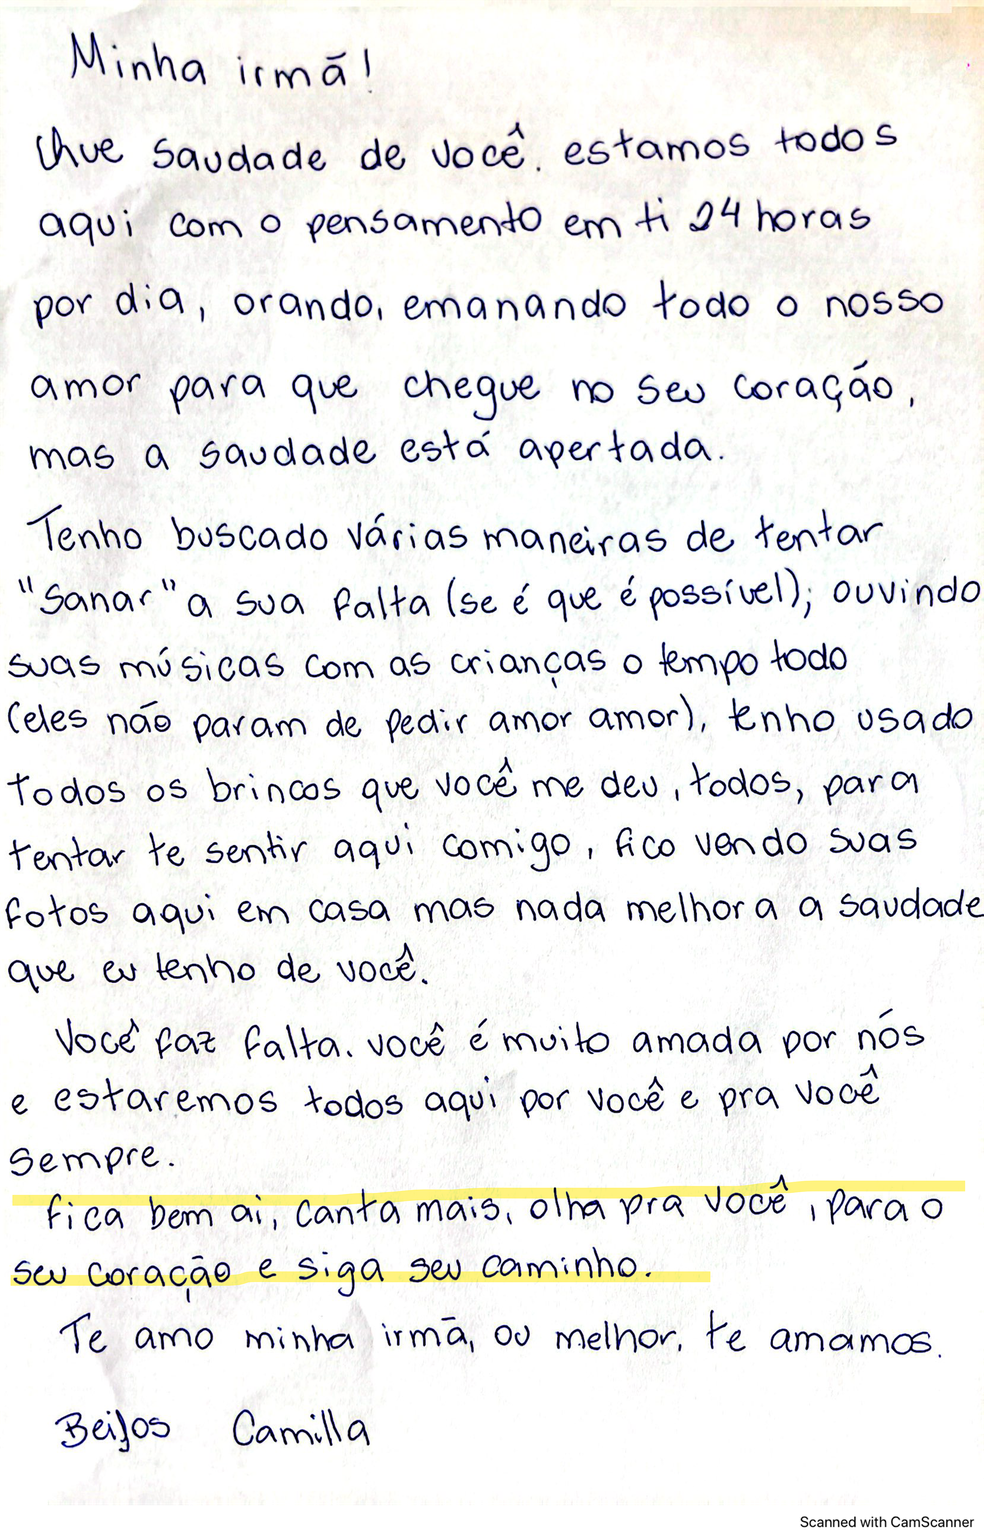 Minha irmã!
Que saudade de você. estamos todos
aqui com o pensamento em ti 24 horas
por dia, orando, emanando todo o nosso
amor para que chegue no seu coração,
mas a saudade está apertada.
Tenho buscado várias maneiras de tentar
"Sanar" a sua falta (se é que é possível); ouvindo
suas músicas com as crianças o tempo todo
(eles não param de pedir amor amor), tenho usado
todos os brincos que você me deu, todos, para
tentar te sentir aqui comigo, fico vendo suas
fotos aqui em casa mas nada melhora a saudade
que eu tenho de você.
Você faz falta. você é muito amada por nós
e estaremos todos aqui por você e pra você
sempre.
fica bem ai, canta mais, olha pra você, para o
seu coração e siga seu caminho.
Te amo minha irmã, ou melhor, te amamos.
Beijos Camilla
Scanned with CamScanner